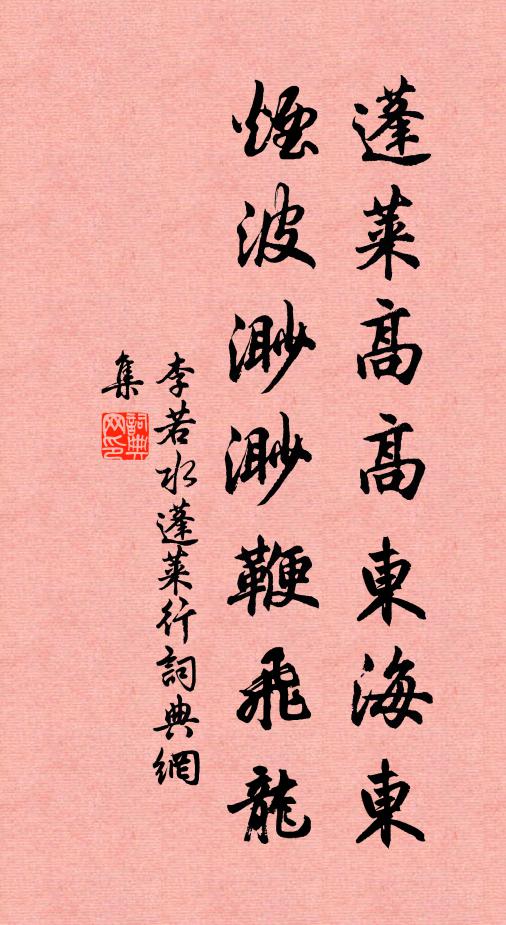 蓬萊高高東海東
煙波渺渺鞭飛龍
李若水蓬萊行詞典網
集
詞典網印